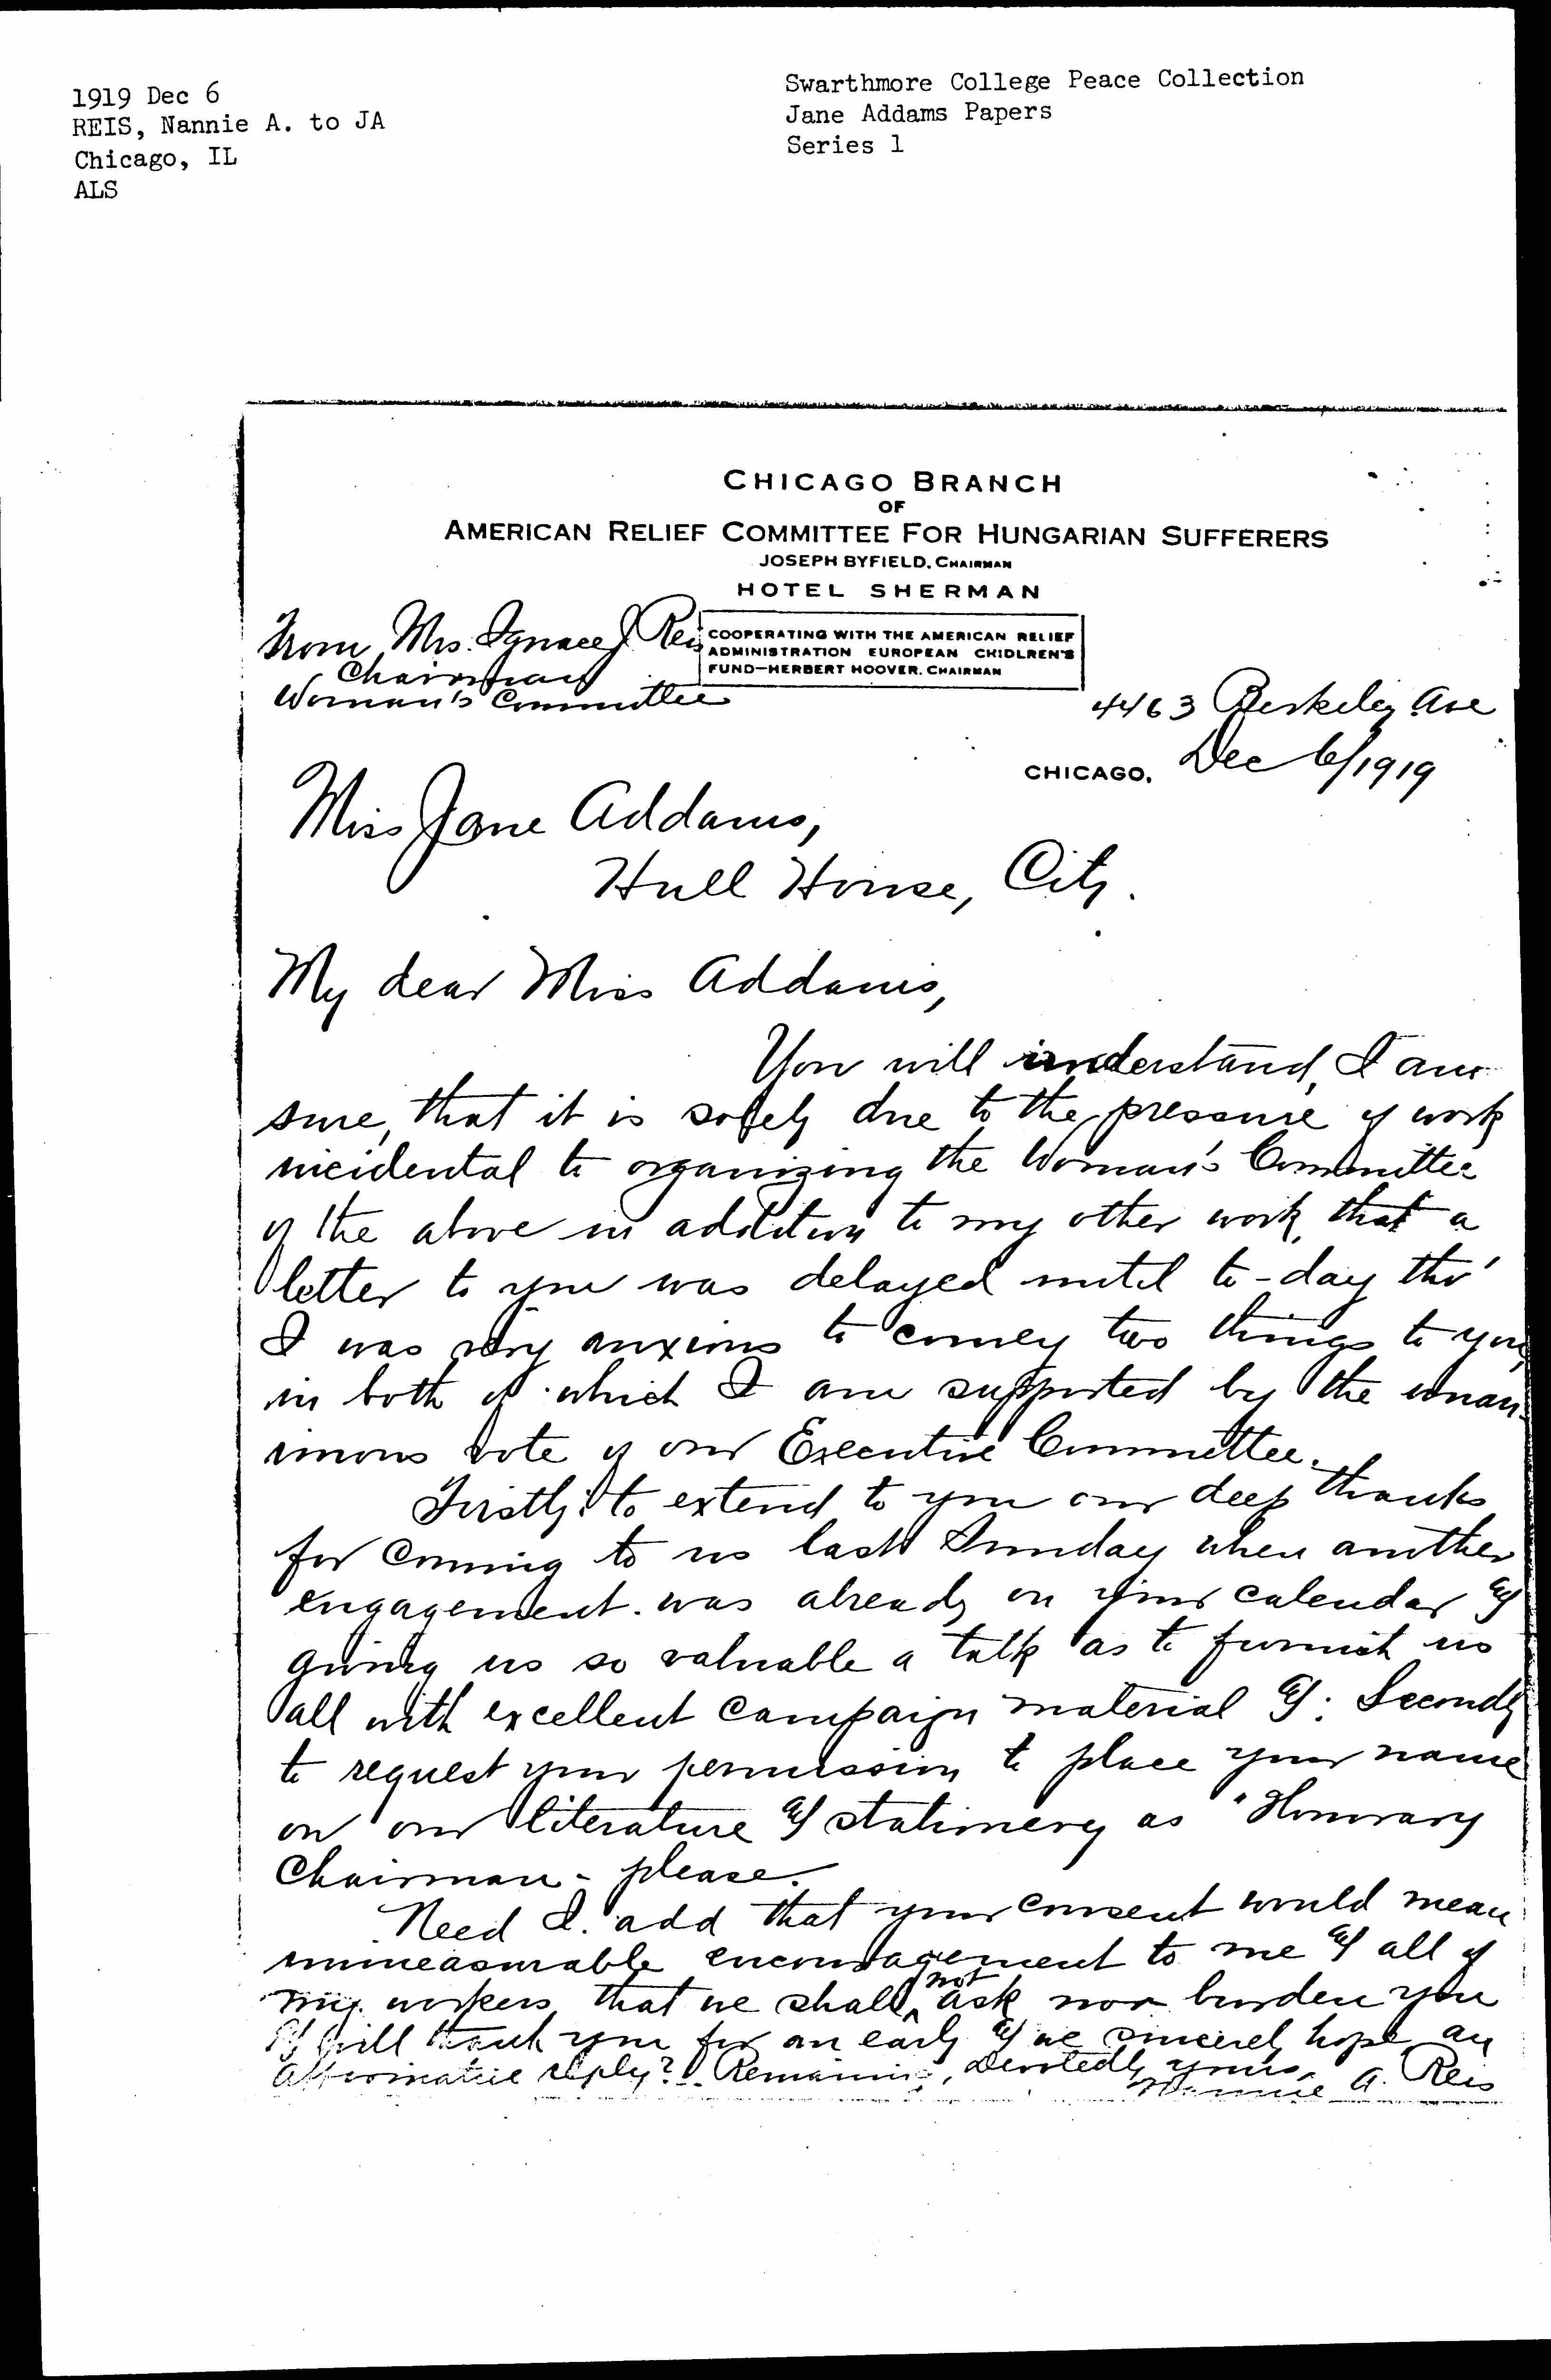 1919 Dec 6
REIS, Nannie A. to JA
Chicago, IL
ALS
Swarthmore College Peace Collection
Jane Addams Papers
Series 1
CHICAGO BRANCH
OF
AMERICAN RELIEF COMMITTEE FOR HUNGARIAN SUFFERERS
JOSEPH BYFIELD, CHAIRMAN
HOTEL SHERMAN
COOPERATING WITH THE AMERICAN RELIEF
ADMINISTRATION EUROPEAN CHIDLREN'S
FUND—HERBERT HOOVER, CHAIRMAN
From Mrs. Ignace J Reis
Chairman
Woman's Committee
4463 Berkeley Ave
CHICAGO, Dec 6/1919
Miss Jane Addams,
Hull House, City.
My dear Miss Addams,
You will understand, I am
sure, that it is solely due to the pressure of work
incidental to organizing the Woman's Committee
of the above in addition to my other work, that a
letter to you was delayed until to-day tho'
I was very anxious to convey two things to you,
in both of which I am supported by the unan-
imous vote of our Executive Committee.
Firstly: to extend to you our deep thanks
for coming to us last Sunday when another
engagement was already on your calendar &
giving us so valuable a talk as to furnish us
all with excellent campaign material &: Secondly
to request your permission to place your name
on our literature & stationery as "Honorary
Chairman - please.
Need I add that your consent would mean
immeasurable encouragement to me & all of
my workers, that we shall not ask nor burden you
& will thank you for an early & we sincerely hope an
affirmative reply? Remaining, Devotedly yours
Nannie A. Reis